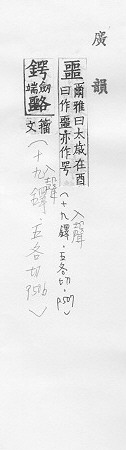 廣韻
噩
爾雅曰太歲在酉
曰作噩亦作咢
入聲
(十九鐸.五各切.P507)
鍔
劒端
籀文
入聲
(十九鐸.五各切 P506)